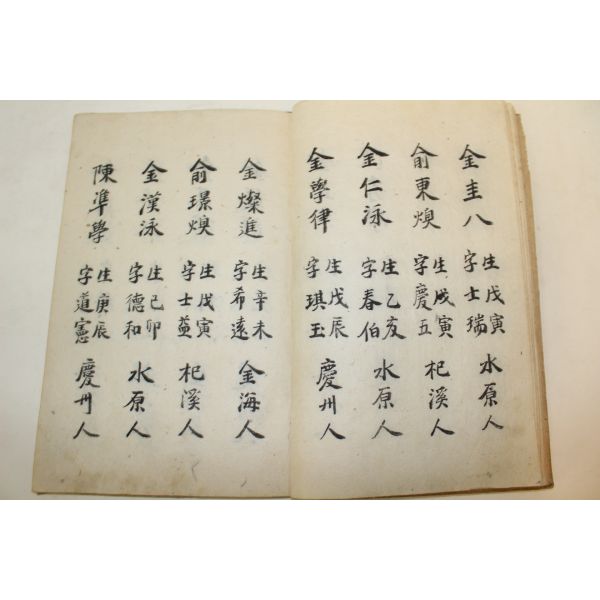 金圭八 生戊寅 字士瑞 水原人
俞東煥 生戊寅 字慶五 杞溪人
金仁泳 生乙亥 字春伯 水原人
金學律 生戊辰 字琪玉 慶州人
金燦進 生辛未 字希遠 金海人
俞環煥 生戊寅 字士 杞溪人
金漢泳 生己卯 字德和 水原人
陳準學 生庚辰 字道憲 慶州人